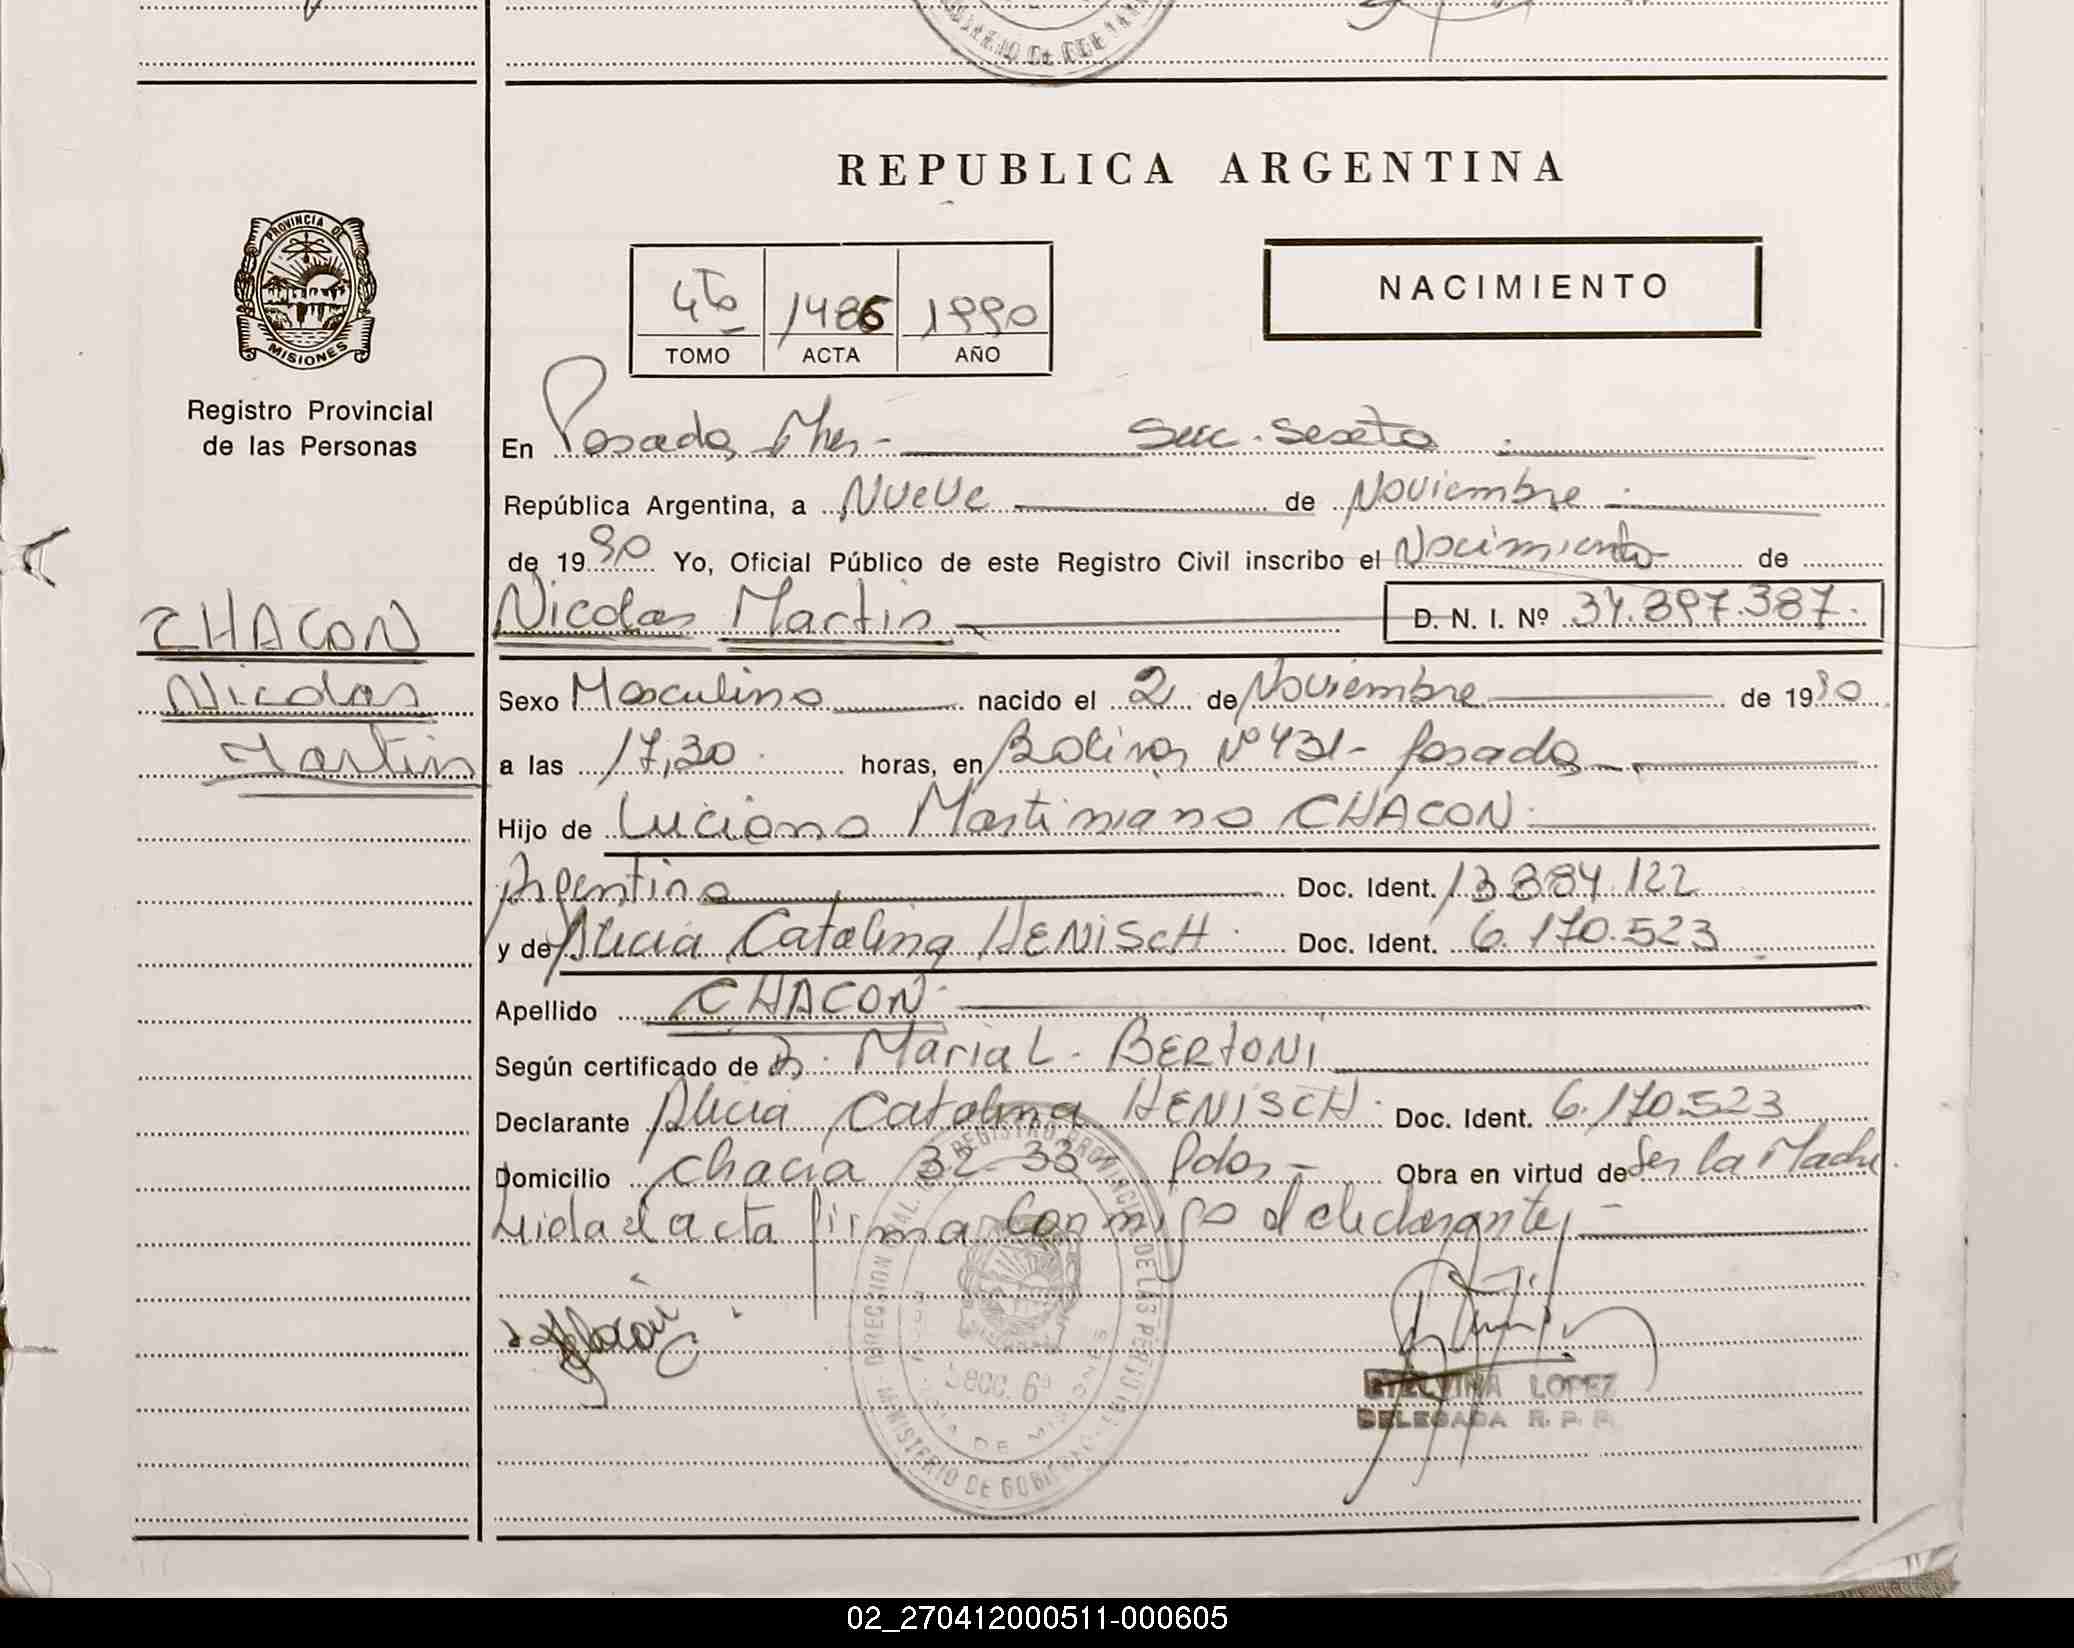 REPUBLICA ARGENTINA
PROVINCIA DE
MISIONES
Registro Provincial
de las Personas
NACIMIENTO
4to 1486 1990
TOMO ACTA AÑO
En Posadas Mnes.- Secc. Sexta
República Argentina, a Nueve de Noviembre
de 1990 Yo, Oficial Público de este Registro Civil inscribo el Nacimiento de
CHACON
Nicolas
Martin
Nicolas Martin D. N. I. Nº 34.897.387.
Sexo Masculino nacido el 2 de Noviembre de 1990
a las 17,30 horas, en Bolivar Nº 431- Posadas
Hijo de Luciano Martiniano CHACON
Argentino Doc. Ident. 13.884.122
y de Alicia Catalina HENISCH Doc. Ident. 6.170.523
Apellido CHACON
Según certificado de Dr. Maria L. BERTONI
Declarante Alicia Catalina HENISCH Doc. Ident. 6.170.523
Domicilio chacra 32-33 Pdas- Obra en virtud de Ser la Madre
Leida el acta firma Conmigo el declarante,-
DIRECCION GRAL. REGISTRO PROVINCIAL DE LAS PERSONAS
Secc. 6ª
MINISTERIO DE GOBIERNO
ETELVINA LOPEZ
DELEGADA R. P. P.
02_270412000511-000605